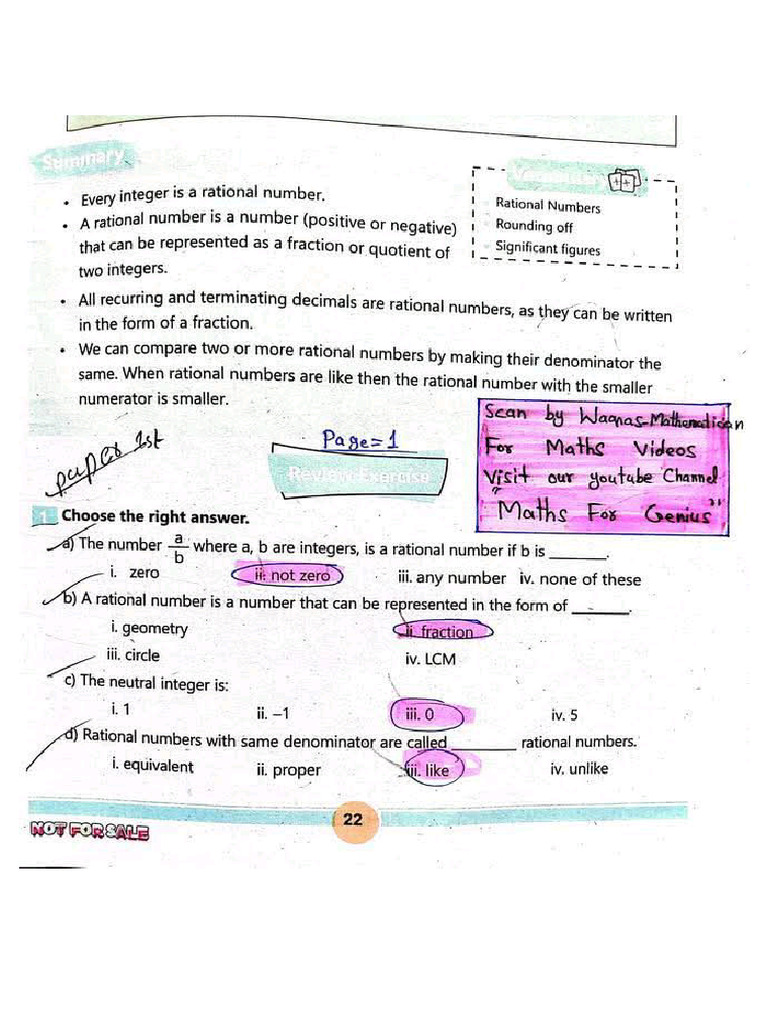 Summary
Vocabulary
• Every integer is a rational number.
• A rational number is a number (positive or negative)
that can be represented as a fraction or quotient of
two integers.
Rational Numbers
Rounding off
Significant figures
• All recurring and terminating decimals are rational numbers, as they can be written
in the form of a fraction.
• We can compare two or more rational numbers by making their denominator the
same. When rational numbers are like then the rational number with the smaller
numerator is smaller.
paper 1st
Page=1
Review Exercise
Scan by Waqnas-Mathematician
For Maths Videos
Visit our youtube Channel
"Maths For Genius"
1 Choose the right answer.
a) The number a/b where a, b are integers, is a rational number if b is ______.
i. zero ii. not zero iii. any number iv. none of these
b) A rational number is a number that can be represented in the form of ______.
i. geometry ii. fraction
iii. circle iv. LCM
c) The neutral integer is:
i. 1 ii. –1 iii. 0 iv. 5
d) Rational numbers with same denominator are called ______ rational numbers.
i. equivalent ii. proper iii. like iv. unlike
22
NOT FOR SALE